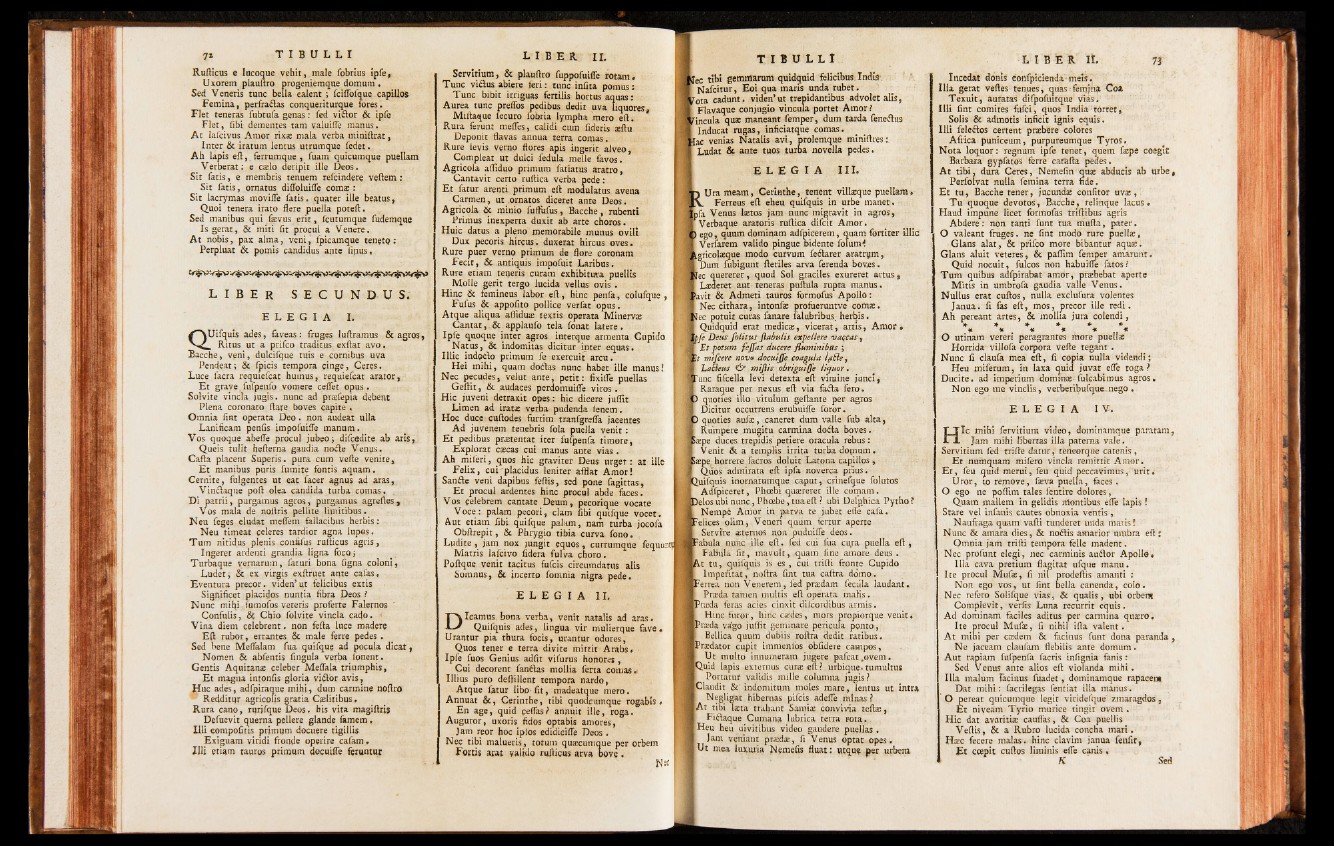 72 TIBULLI
Ruſticus e lucoque vehit, male ſobrius ipſe,
Uxorem plauſtro progeniemque domum.
Sed Veneris tunc bella calent; ſciſſoſque capillos
Femina, perfractas conqueriturque fores.
Flet teneras ſubtuſa genas: ſed victor & ipſe
Flet, ſibi dementes tam valuiſſe manus.
At laſcivus Amor rixæ mala verba miniſtrat,
Inter & iratum lentus utrumque ſedet.
Ah lapis eſt, ferrumque, ſuam quicumque puellam
Verberat: e cælo deripit ille Deos.
Sit ſatis, e membris tenuem reſcindere veſtem:
Sit ſatis, ornatus diſſoluiſſe comæ:
Sit lacrymas moviſſe ſatis, quater ille beatus,
Quoi tenera irato flere puella poteſt.
Sed manibus qui ſævus erit, ſcutumque ſudemque
Is gerat, & miti ſit procul a Venere.
At nobis, pax alma, veni, ſpicamque teneto:
Perpluat & pomis candidus ante ſinus.
LIBER SECUNDUS.
ELEGIA I.
QUiſquis ades, faveas: fruges luſtramus & agros,
Ritus ut a priſco traditus exſtat avo.
Bacche, veni, dulciſque tuis e cornibus uva
Pendeat; & ſpicis tempora cinge, Ceres.
Luce ſacra requieſcat humus, requieſcat arator,
Et grave ſuſpenſo vomere ceſſet opus.
Solvite vincla jugis. nunc ad præſepia debent
Plena coronato ſtare boves capite.
Omnia ſint operata Deo. non audeat ulla
Lanificam penſis impoſuiſſe manum.
Vos quoque abeſſe procul jubeo; diſcedite ab aris,
Queis tulit heſterna gaudia nocte Venus.
Caſta placent Superis. pura cum veſte venite,
Et manibus puris ſumite fontis aquam.
Cernite, fulgentes ut eat ſacer agnus ad aras,
Vinctaque poſt olea candida turba comas.
Di patrii, purgamus agros, purgamus agreſtes,
Vos mala de noſtris pellite limitibus.
Neu ſeges eludat meſſem fallacibus herbis:
Neu timeat celeres tardior agna lupos.
Tum nitidus plenis confiſus ruſticus agris,
Ingeret ardenti grandia ligna foco;
Turbaque vernarum, ſaturi bona ſigna coloni,
Ludet, & ex virgis exſtruet ante caſas,
Eventura precor. viden' ut felicibus extis
Significet placidos nuntia fibra Deos?
Nunc mihi fumoſos veteris proferte Falernos
Conſulis, & Chio ſolvite vincla cado.
Vina diem celebrent. non feſta luce madere
Eſt rubor, errantes & male ferre pedes.
Sed bene Meſſalam ſua quiſque ad pocula dicat,
Nomen & abſentis ſingula verba ſonent.
Gentis Aquitanæ celeber Meſſala triumphis,
Et magna intonſis gloria victor avis,
Huc ades, adſpiraque mihi, dum carmine noſtro
Redditur agricolis gratia Cælitibus.
Rura cano, ruriſque Deos. his vita magiſtris
Deſuevit querna pellere glande famem.
Illi compoſitis primum docuere tigillis
Exiguam viridi fronde operire caſam.
Illi etiam tauros primum docuiſſe feruntur
LIBER II.
Servitium, & plauſtro ſuppoſuiſſe rotam.
Tunc victus abiere feri: tunc inſita pomus:
Tunc bibit irriguas fertilis hortus aquas:
Aurea tunc preſſos pedibus dedit uva liquores,
Miſtaque ſecuro ſobria lympha mero eſt.
Rura ferunt meſſes, calidi cum ſideris æſtu
Deponit flavas annua terra comas.
Rure levis verno flores apis ingerit alveo,
Compleat ut dulci ſedula melle favos.
Agricola aſſiduo primum ſatiatus aratro,
Cantavit certo ruſtica verba pede:
Et ſatur arenti primum eſt modulatus avena
Carmen, ut ornatos diceret ante Deos.
Agricola & minio ſuffuſus, Bacche, rubenti
Primus inexperta duxit ab arte choros.
Huic datus a pleno memorabile munus ovili
Dux pecoris hircus. duxerat hircus oves.
Rure puer verno primum de flore coronam
Fecit, & antiquis impoſuit Laribus.
Rure etiam teneris curam exhibitura puellis
Molle gerit tergo lucida vellus ovis.
Hinc & femineus labor eſt, hinc penſa, coluſque,
Fuſus & appoſito pollice verſat opus.
Atque aliqua aſſiduæ textris operata Minervæ
Cantat, & applauſo tela ſonat latere.
Ipſe quoque inter agros interque armenta Cupido
Natus, & indomitas dicitur inter equas.
Illic indocto primum ſe exercuit arcu.
Hei mihi, quam doctas nunc habet ille manus!
Nec pecudes, velut ante, petit: fixiſſe puellas
Geſtit, & audaces perdomuiſſe viros.
Hic juveni detraxit opes: hic dicere juſſit
Limen ad iratæ verba pudenda ſenem.
Hoc duce cuſtodes furtim tranſgreſſa jacentes
Ad juvenem tenebris ſola puella venit:
Et pedibus prætentat iter ſuſpenſa timore,
Explorat cæcas cui manus ante vias.
Ah miſeri, quos hic graviter Deus urget: at ille
Felix, cui placidus leniter afflat Amor!
Sancte veni dapibus feſtis, ſed pone ſagittas,
Et procul ardentes hinc procul abde faces.
Vos celebrem cantate Deum, pecorique vocate
Voce: palam pecori, clam ſibi quiſque vocet.
Aut etiam ſibi quiſque palam, nam turba jocoſa
Obſtrepit, & Phrygio tibia curva ſono.
Ludite, jam nox jungit equos, currumque ſequuntur
Matris laſcivo ſidera fulva choro.
Poſtque venit tacitus fuſcis circumdatus alis
Somnus, & incerto ſomnia nigra pede.
ELEGIA II.
DIcamus bona verba, venit natalis ad aras.
Quiſquis ades, lingua vir mulierque fave.
Urantur pia thura focis, urantur odores,
Quos tener e terra divite mittit Arabs.
Ipſe ſuos Genius adſit viſurus honores,
Cui decorent ſanctas mollia ſerta comas.
Illius puro deſtillent tempora nardo,
Atque ſatur libo ſit, madeatque mero.
Annuat &, Cerinthe, tibi quodcumque rogabis.
En age, quid ceſſas? annuit ille, roga.
Auguror, uxoris fidos optabis amores,
Jam reor hoc ipſos edidiciſſe Deos.
Nec tibi malueris, totum quæcumque per orbem
Fortis arat valido ruſticus arva bove.
Nec
TIBULLI
Nec tibi gemmarum quidquid felicibus Indis
Naſcitur, Eoi qua maris unda rubet.
Vota cadunt. viden' ut trepidantibus advolet alis,
Flavaque conjugio vincula portet Amor?
Vincula quæ maneant ſemper, dum tarda ſenectus
Inducat rugas, inficiatque comas.
Hac venias Natalis avi, prolemque miniſtres:
Ludat & ante tuos turba novella pedes.
ELEGIA III.
RUra meam, Cerinthe, tenent villæque puellam.
Ferreus eſt eheu quiſquis in urbe manet.
Ipſa Venus lætos jam nunc migravit in agros,
Verbaque aratoris ruſtica diſcit Amor.
O ego, quum dominam adſpicerem, quam fortiter illic
Verſarem valido pingue bidente ſolum!
Agricolæque modo curvum ſectarer aratrum,
Dum ſubigunt ſteriles arva ſerenda boves.
Nec quererer, quod Sol graciles exureret artus,
Læderet aut teneras puſtula rupta manus.
Pavit & Admeti tauros formoſus Apollo:
Nec cithara, intonſæ profueruntve comæ.
Nec potuit curas ſanare ſalubribus herbis.
Quidquid erat medicæ, vicerat, artis, Amor.
Ipſe Deus ſolitus ſtabulis expellere vaccas,
Et potum feſſas ducere fluminibus;
Et miſcere novo docuiſſe coagula lacte,
Lacteus & miſtis obriguiſſe liquor.
Tunc fiſcella levi detexta eſt vimine junci,
Raraque per nexus eſt via facta ſero.
O quoties illo vitulum geſtante per agros
Dicitur occurrens erubuiſſe ſoror.
O quoties auſæ, caneret dum valle ſub alta,
Rumpere mugitu carmina docta boves.
Sæpe duces trepidis petiere oracula rebus:
Venit & a templis irrita turba domum.
Sæpe horrere ſacros doluit Latona capillos,
Quos admirata eſt ipſa noverca prius.
Quiſquis inornatumque caput, crineſque ſolutos
Adſpiceret, Phœbi quæreret ille comam.
Delos ubi nunc, Phœbe, tua eſt? ubi Delphica Pytho?
Nempe Amor in parva te jubet eſſe caſa.
Felices olim, Veneri quum fertur aperte
Servire æternos non puduiſſe deos.
Fabula nunc ille eſt. ſed cui ſua cura puella eſt,
Fabula ſit, mavult, quam ſine amore deus.
At tu, quiſquis is es, cui triſti fronte Cupido
Imperitat, noſtra ſint tua caſtra domo.
Ferrea non Venerem, ſed prædam ſecula laudant.
Præda tamen multis eſt operata malis.
Præda feras acies cinxit diſcordibus armis.
Hinc furor, hinc cædes, mors propiorque venit.
Præda vago juſſit geminare pericula ponto,
Bellica quum dubiis roſtra dedit ratibus.
Prædator cupit immenſos obſidere campos,
Ut multo innumeram jugere paſcat ovem.
Quid lapis externus curæ eſt? urbique tumultus
Portatur validis mille columna jugis?
Claudit & indomitum moles mare, lentus ut intra
Negligat hibernas piſcis adeſſe minas?
At tibi læta trahant Samiæ convivia teſtæ,
Fictaque Cumana lubrica terra rota.
Heu heu divitibus video gaudere puellas.
Jam veniant prædæ, ſi Venus optat opes.
Ut mea luxuria Nemeſis fluat: utque per urbem
LIBER II. 73
Incedat donis conſpicienda meis.
Illa gerat veſtes tenues, quas femina Coa
Texuit, auratas diſpoſuitque vias.
Illi ſint comites fuſci, quos India torret,
Solis & admotis inficit ignis equis.
Illi ſelectos certent præbere colores
Africa puniceum, purpureumque Tyros.
Nota loquor: regnum ipſe tenet, quem ſæpe coegit
Barbara gypſatos ferre cataſta pedes.
At tibi, dura Ceres, Nemeſin quæ abducis ab urbe,
Perſolvat nulla ſemina terra fide.
Et tu, Bacche tener, jucundæ conſitor uvæ,
Tu quoque devotos, Bacche, relinque lacus.
Haud impune licet formoſas triſtibus agris
Abdere: non tanti ſunt tua muſta, pater.
O valeant fruges. ne ſint modo rure puellæ,
Glans alat, & priſco more bibantur aquæ.
Glans aluit veteres, & paſſim ſemper amarunt.
Quid nocuit, ſulcos non habuiſſe ſatos?
Tum quibus adſpirabat amor, præbebat aperte
Mitis in umbroſa gaudia valle Venus.
Nullus erat cuſtos, nulla excluſura volentes
Janua. ſi fas eſt, mos, precor ille redi.
Ah pereant artes, & mollia jura colendi,
* * * * * *
O utinam veteri peragrantes more puellæ
Horrida villoſa corpora veſte tegant.
Nunc ſi clauſa mea eſt, ſi copia nulla videndi;
Heu miſerum, in laxa quid juvat eſſe toga?
Ducite. ad imperium dominæ ſulcabimus agros.
Non ego me vinclis, verberibuſque nego.
ELEGIA IV.
HIc mihi ſervitium video, dominamque paratam,
Jam mihi libertas illa paterna vale.
Servitium ſed triſte datur, teneorque catenis,
Et numquam miſero vincla remittit Amor.
Et, ſeu quid merui, ſeu quid peccavimus, urit.
Uror, io remove, ſæva puella, faces.
O ego ne poſſim tales ſentire dolores,
Quam mallem in gelidis montibus eſſe lapis!
Stare vel inſanis cautes obnoxia ventis,
Naufraga quam vaſti tunderet unda maris!
Nunc & amara dies, & noctis amarior umbra eſt:
Omnia jam triſti tempora felle madent.
Nec proſunt elegi, nec carminis auctor Apollo,
Illa cava pretium flagitat uſque manu.
Ite procul Muſæ, ſi nil prodeſtis amanti:
Non ego vos, ut ſint bella canenda, colo.
Nec refero Soliſque vias, & qualis, ubi orbem
Complevit, verſis Luna recurrit equis.
Ad dominam faciles aditus per carmina quæro.
Ite procul Muſæ, ſi nihil iſta valent.
At mihi per cædem & facinus ſunt dona paranda,
Ne jaceam clauſam flebilis ante domum.
Aut rapiam ſuſpenſa ſacris inſignia fanis:
Sed Venus ante alios eſt violanda mihi.
Illa malum facinus ſuadet, dominamque rapacem
Dat mihi: ſacrilegas ſentiat illa manus.
O pereat quicumque legit virideſque zmaragdos,
Et niveam Tyrio murice tingit ovem.
Hic dat avaritiæ cauſſas, & Coa puellis
Veſtis, & a Rubro lucida concha mari.
Hæc fecere malas. hinc clavim janua ſenſit,
Et cœpit cuſtos liminis eſſe canis.
K Sed